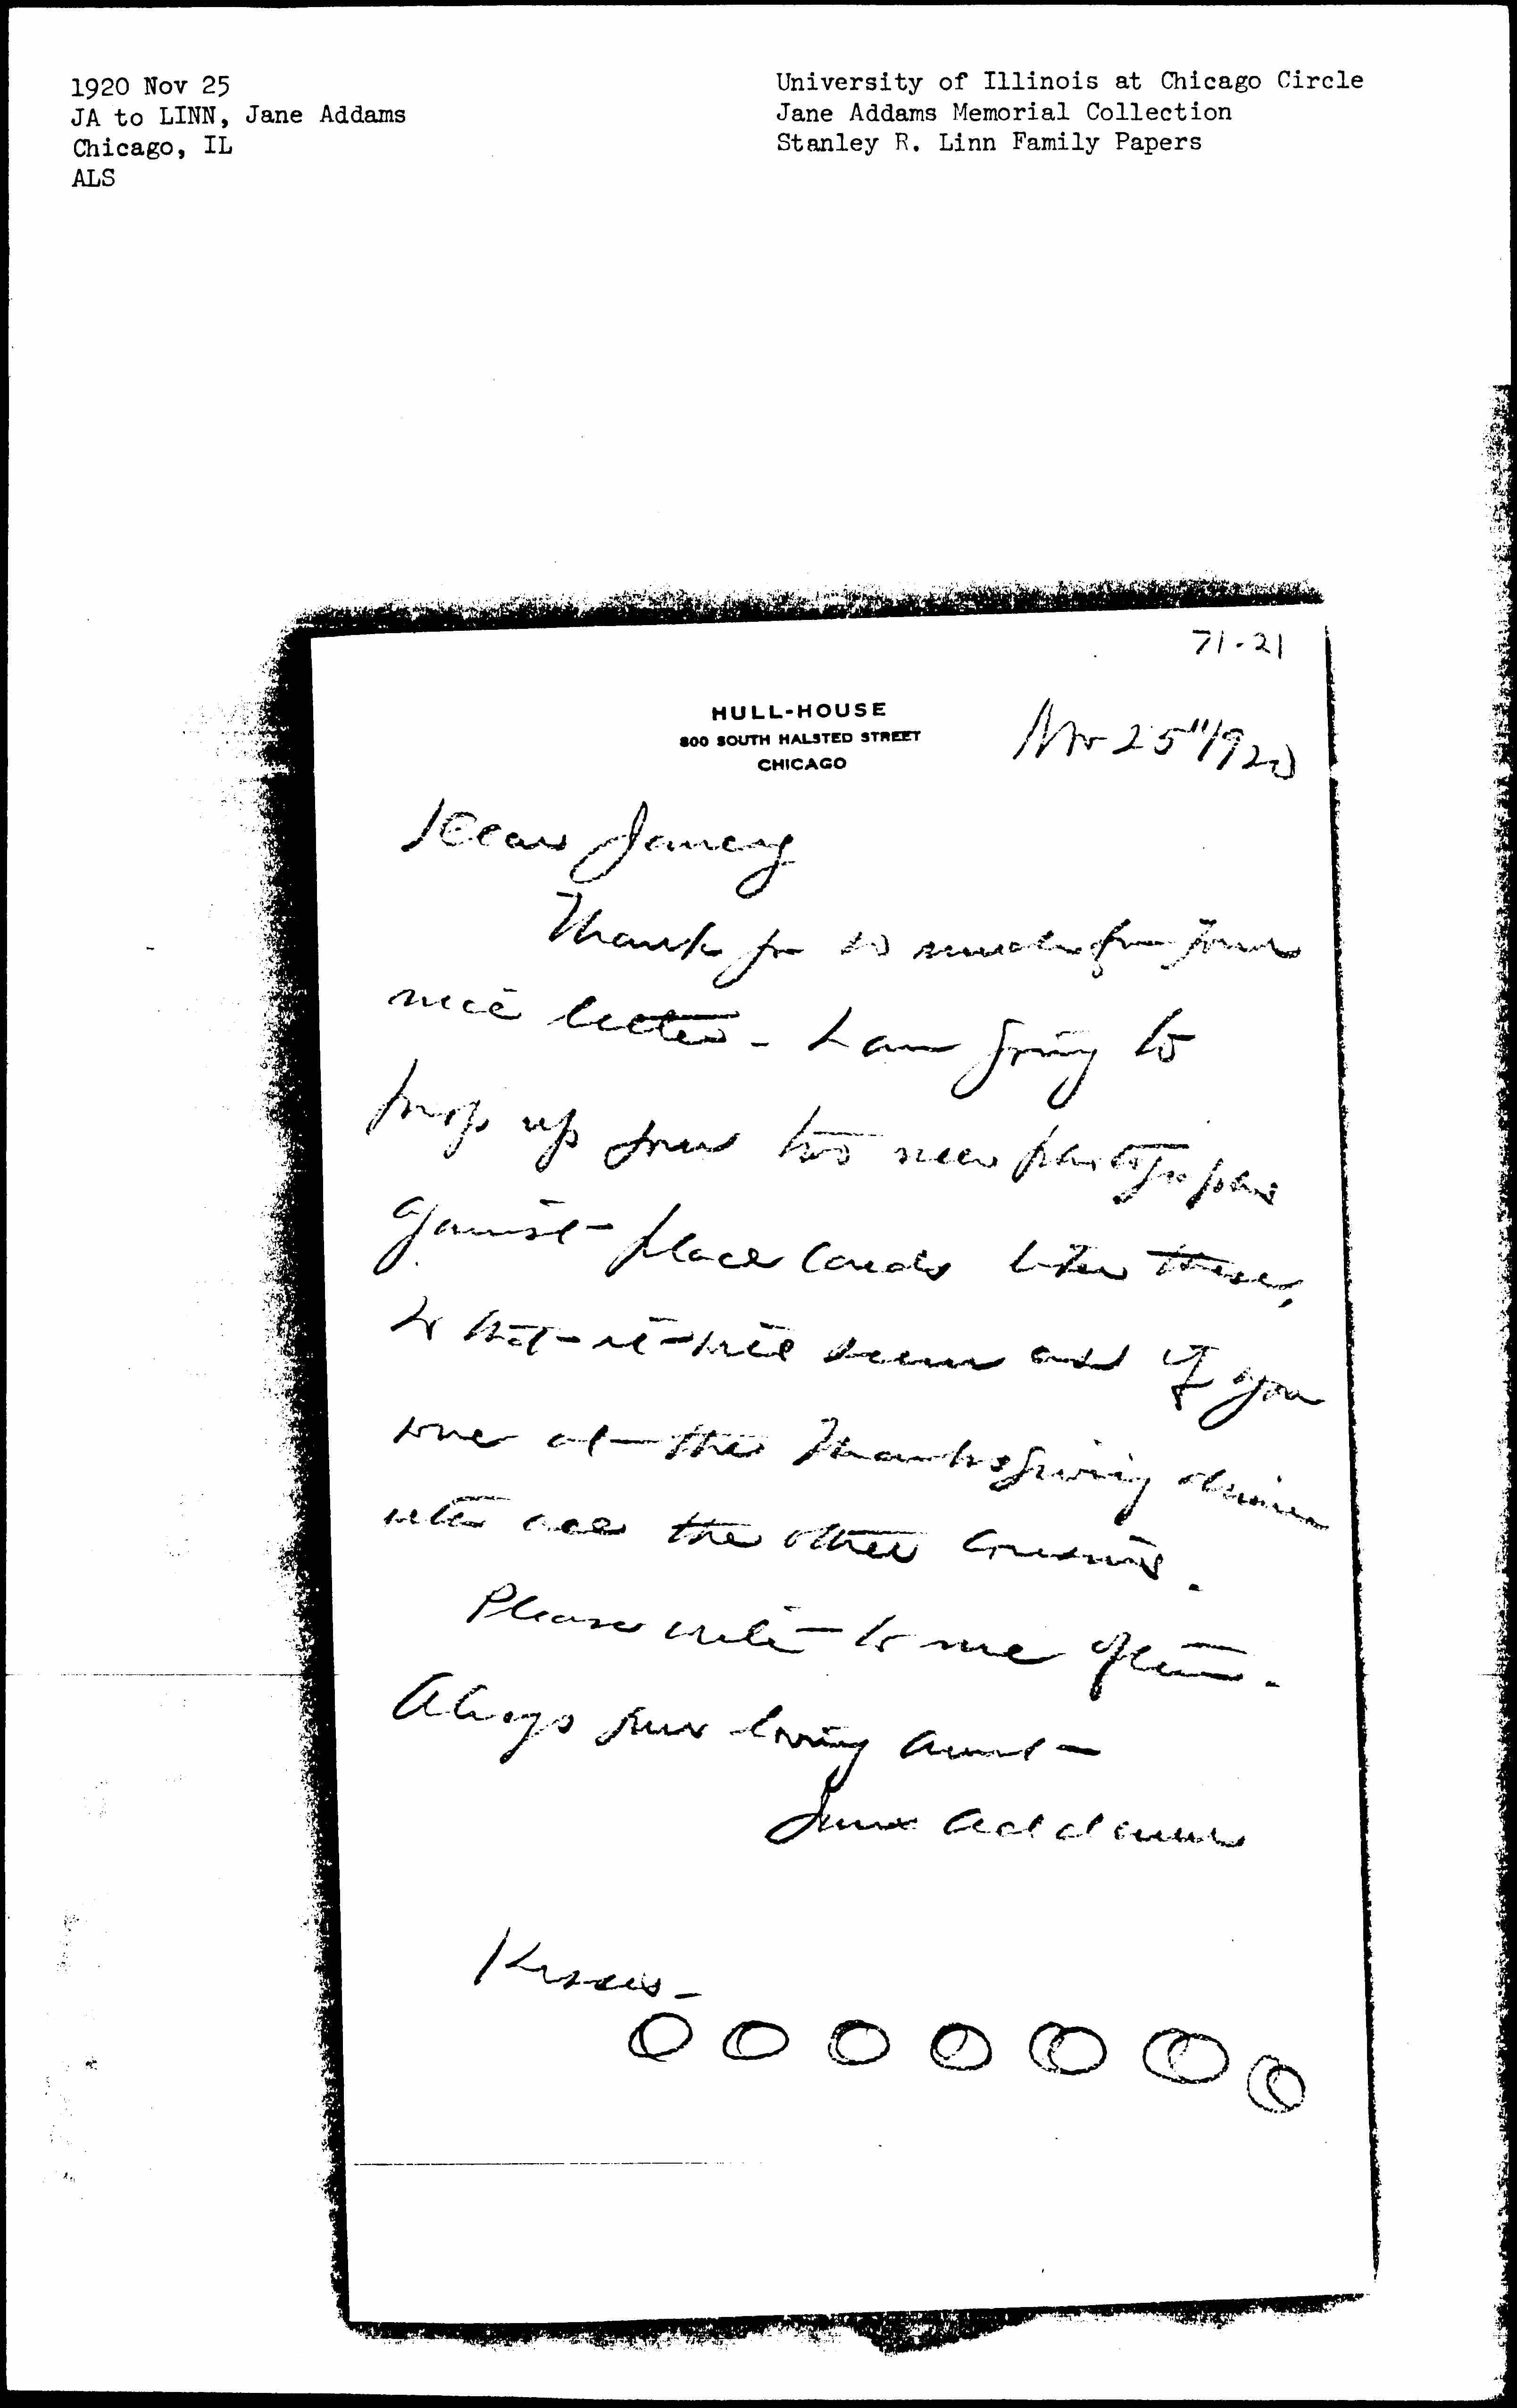 1920 Nov 25
JA to LINN, Jane Addams
Chicago, IL
ALS
University of Illinois at Chicago Circle
Jane Addams Memorial Collection
Stanley R. Linn Family Papers
71-21
HULL-HOUSE
800 SOUTH HALSTED STREET
CHICAGO
Nov 25" 1920
Dear Janey
Thank you so much for your
nice letter - I am going to
prop up your two new photographs
against place cards like these,
so that it will seem as if you
were at the Thanksgiving dinner
with all the other cousins.
Please write to me often.
Always your loving aunt -
Jane Addams
Kisses -
O O O O O O O